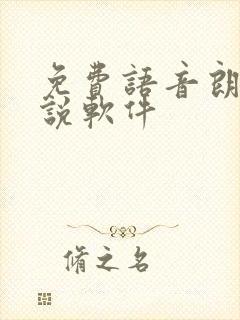 免費語音朗
說軟件
脩之名